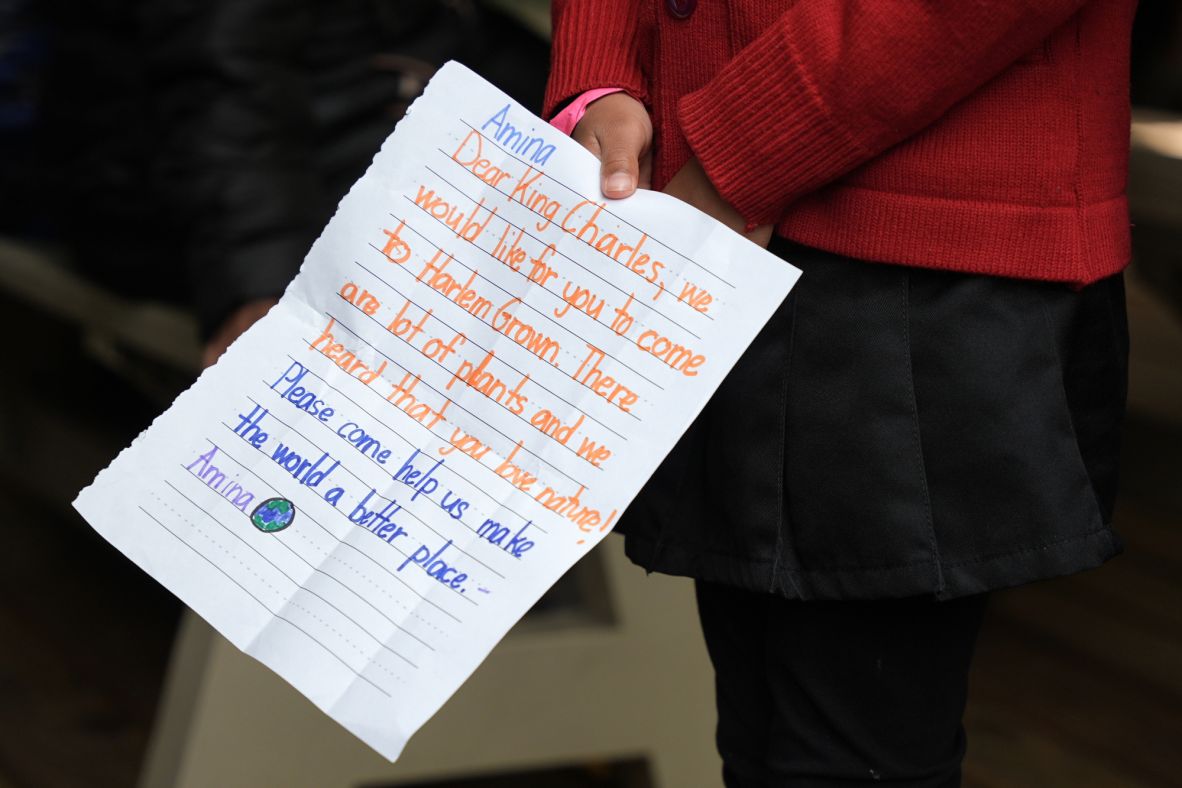 Amina
Dear King Charles, we
would like for you to come
to Harlem Grown. There
are lot of plants and we
heard that you love nature!
Please come help us make
the world a better place. -
Amina